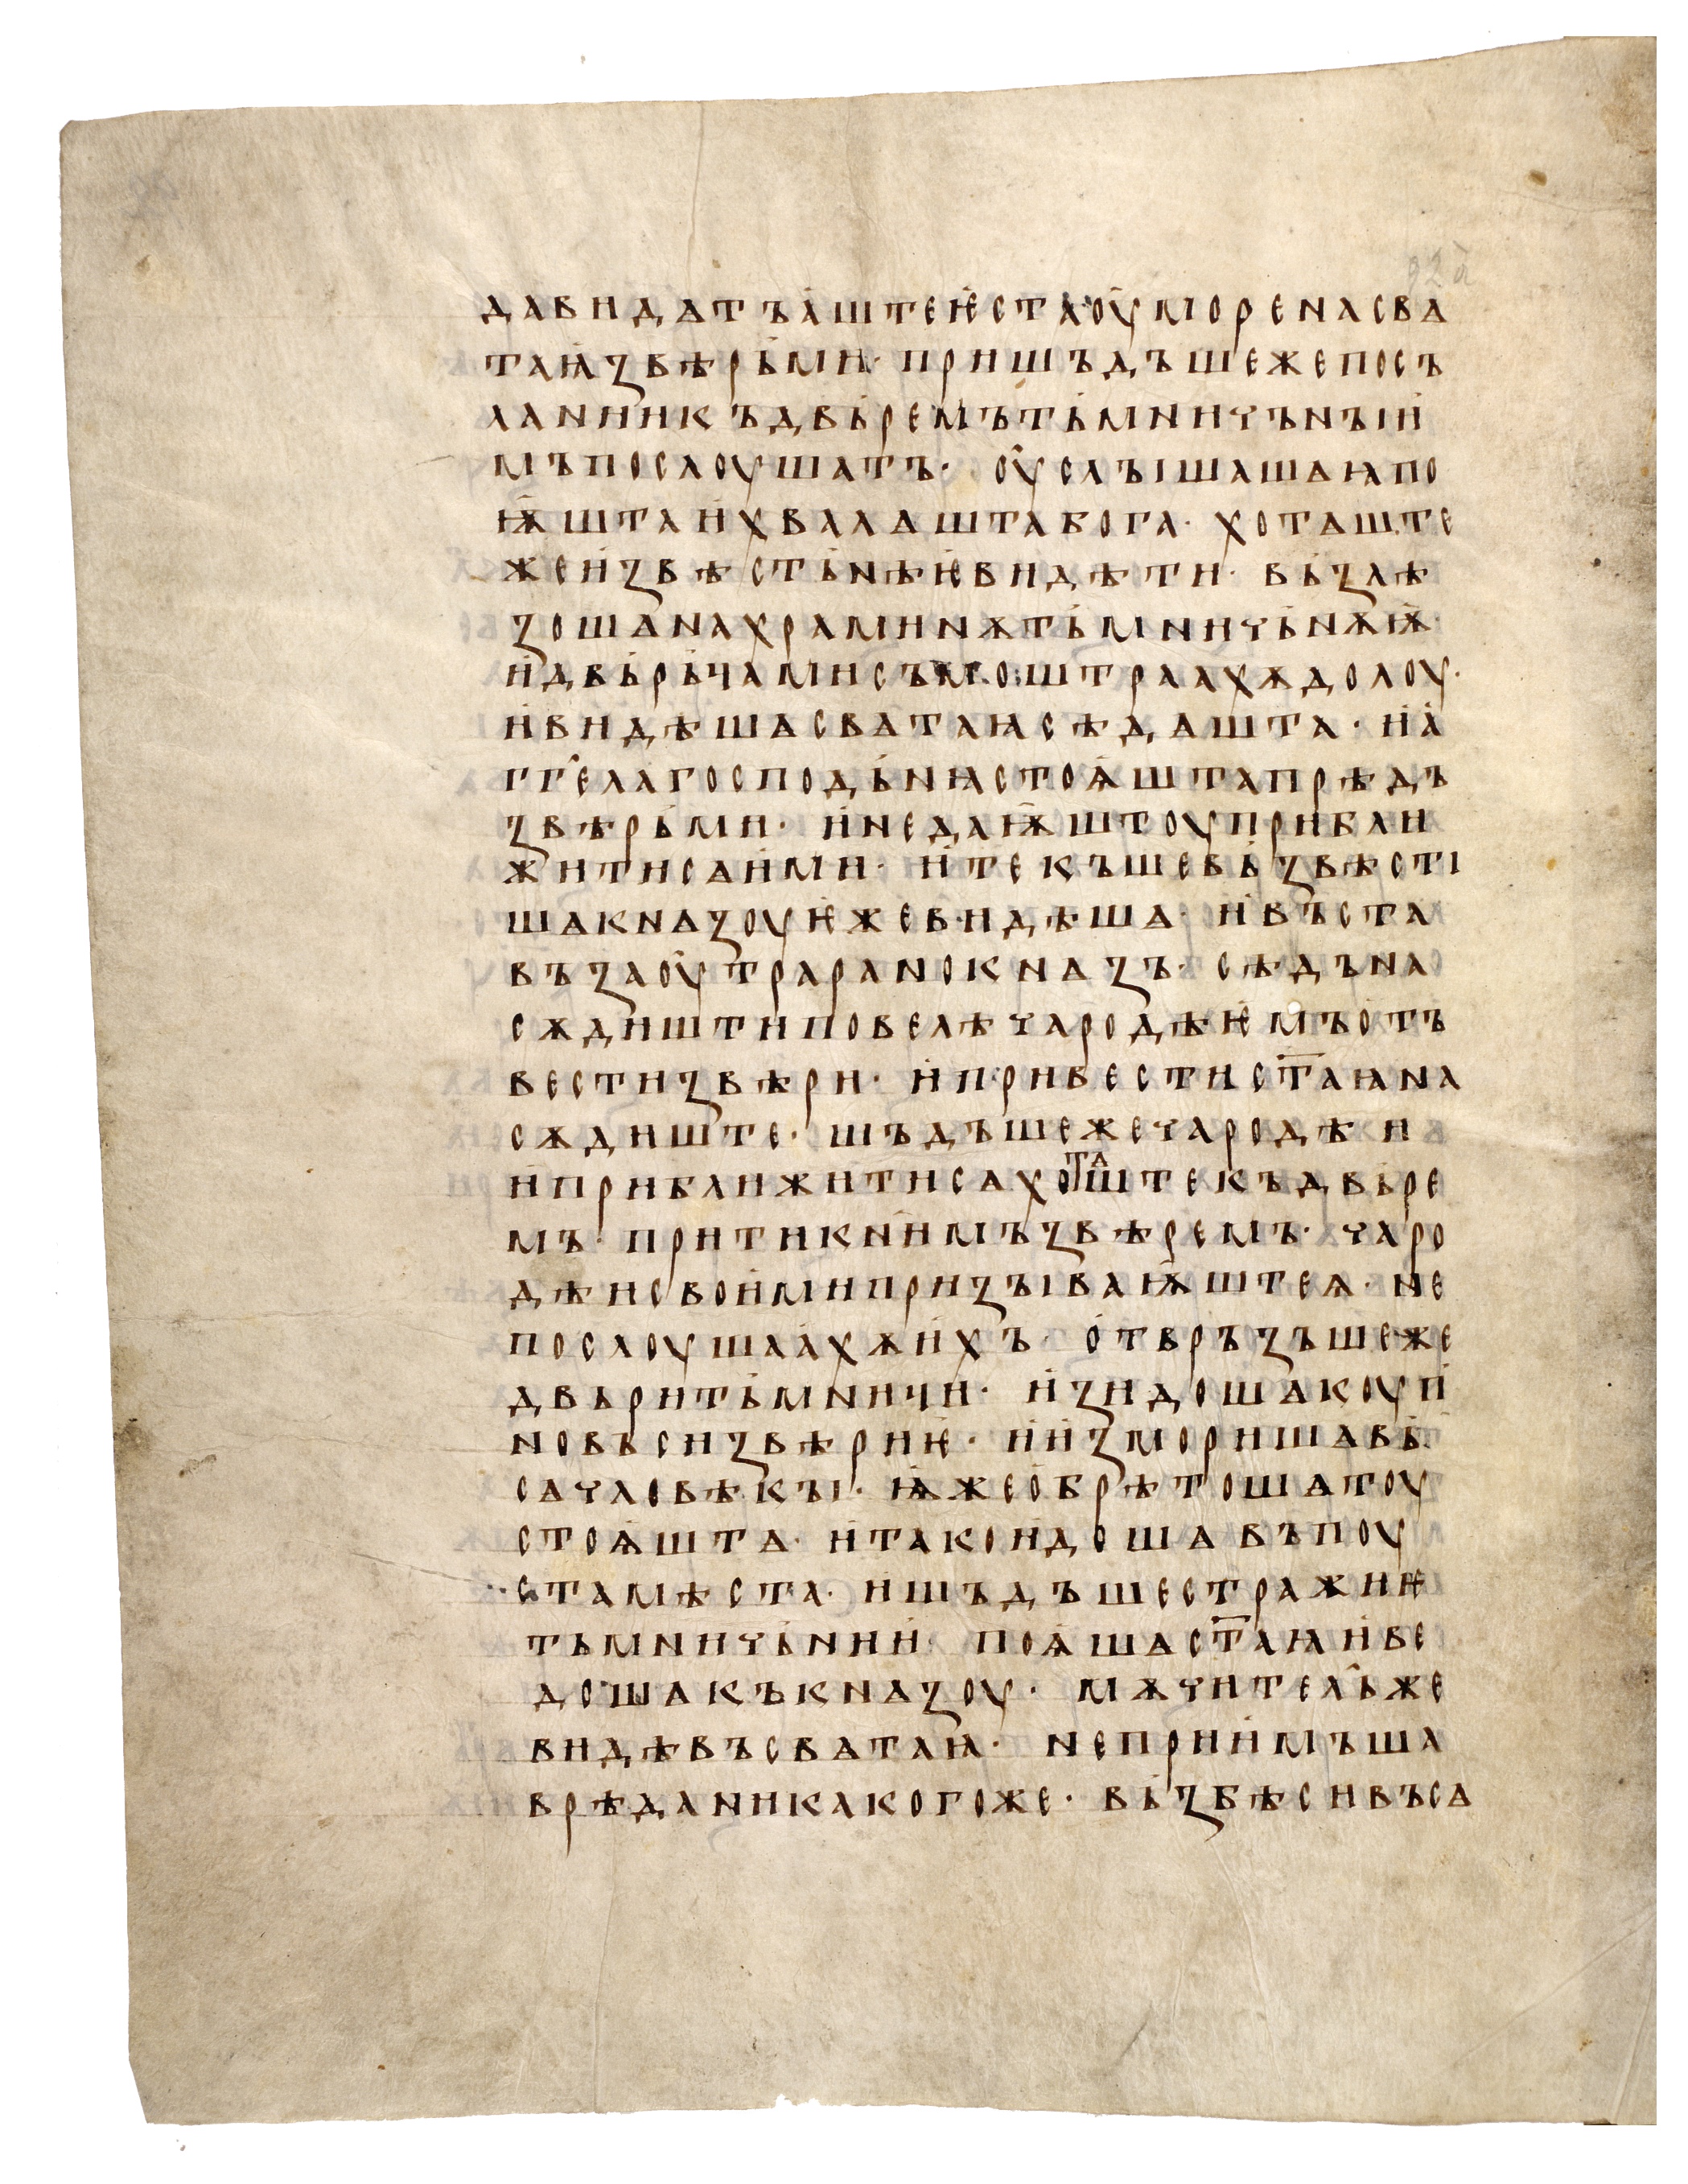 давидѧтъ а҅ште ѥ҅стꙗ оу҅морена свѧ
таꙗ҅ ꙁвѣрьми· пришъдъше же посъ
ланіи къ двьремъ тьмничънъіи҅
мъ послоушатъ· оу҅слъішашѧ ꙗ по
ѭ҅шта и҅ хвалѧшта бога· хотѧште
же и҅ꙁвѣстьнѣѥ҅ видѣти· вьꙁлѣ
ꙁошѧ на храминѫ тьмничьнѫѭ҅·
и҅ двьрьцами съмоштрꙗахѫ долоу·
и҅ видѣшѧ свѧтаꙗ сѣдѧшта· и҅ а҅
гг҄ела господьнꙗ стоѧ҅шта прѣдъ
ꙁвѣрьми· и҅ не даѭ҅штоу прибли
житисѧ и҅ми· и҅ текъше вьꙁвѣсти
шѧ кнѧꙁоу ѥ҅же видѣшѧ· и҅ въста
въ ꙁа оу҅тра рано кнѧꙁъ· сѣдъ на
сѫдишти повелѣ чародѣѥ҅мъ отъ
вести ꙁвѣри· и҅ привести ст҃аꙗ на
сѫдиште· шъдъше же чародѣи
и҅ приближитисѧ хотѧште къ двьре
мъ· притъкнимъ ꙁвѣремъ· чаро
дѣи свои҅ми приꙁъіваѭ҅ште ѧ· не
послоушаа҅хѫ и҅хъ· о҅твръꙁъше же
двьри тьмници· и҅ꙁидошѧ коуп
но вьси ꙁвѣриѥ҅· и҅ и҅ꙁморишѧ вь
сѧ чловѣкъі· ꙗ҅же о҅брѣтошѧ тоу
стоѧ҅штѧ· и҅ тако и҅дошѧ въ поу
ста мѣста· и҅ шъдъше стражиѥ
тьмничьнии҅· поѧ҅шѧ ст҃аꙗ и҅ ве
дошѧ къ кнѧꙁоу· мѫчител҄ь же
видѣвъ свѧтаꙗ҅· не приим҅ъша
врѣда никакогоже· вьꙁбѣсивъ сѧ